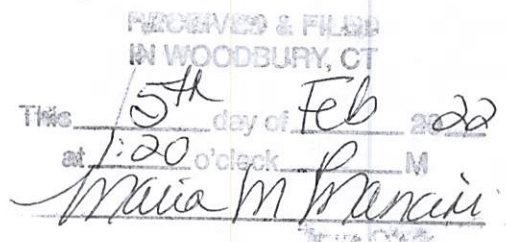 RECEIVED & FILED
IN WOODBURY, CT
This 15th day of Feb 2022
at 1:20 o'clock P M
Maria M Mancini
Town Clerk